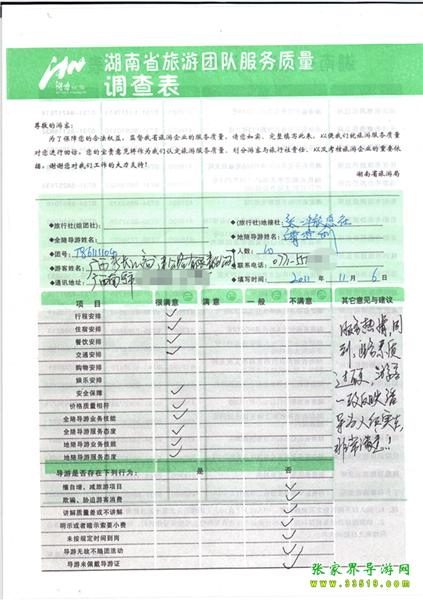 湖南省旅游团队服务质量
调查表
尊敬的游客:
为了保障您的合法权益,监督我省旅游企业的服务质量,请您如实、完整填写此表,以便我们就旅游服务质量
对您进行回访。您的宝贵意见将作为我们认定旅游服务质量、划分游客与旅行社责任、以及考核旅游企业的重要依
据。谢谢您对我们工作的大力支持!
湖南省旅游局
◆旅行社(组团社):
◆旅行社(地接社):
◆全陪导游姓名:
◆地陪导游姓名:
◆团号:
◆人数:
◆游客姓名:
◆联系电话:
◆通讯地址:
◆填写时间: 2011 年 11 月 6 日
项 目 很满意 满 意 一 般 不满意 其它意见与建议
行程安排
住宿安排
餐饮安排
交通安排
购物安排
娱乐安排
安全保障
价格质量相符
全陪导游业务技能
全陪导游服务态度
地陪导游业务技能
地陪导游服务态度
服务热情,周
到,业务素质
过硬,游客
一致反映
非常满意!
导游是否存在下列行为: 是 否
擅自增、减旅游项目
欺骗、胁迫游客消费
讲解质量差或不讲解
明示或者暗示索要小费
未按规定时间到岗
导游无故不随团活动
导游未佩戴导游证
张家界导游网
www.33519.com